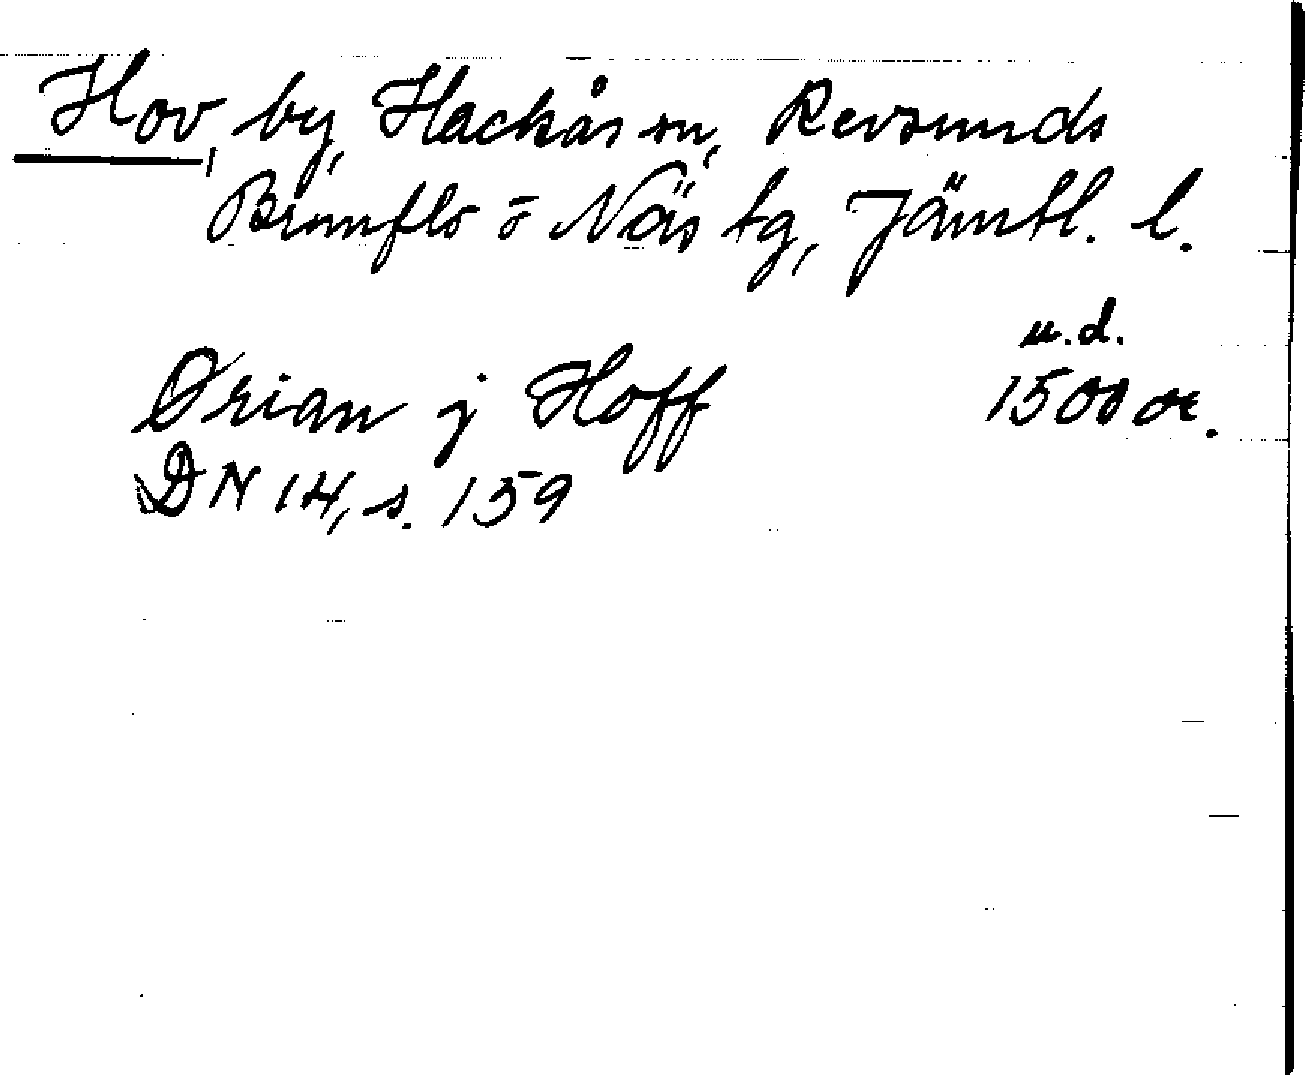 Hov, by, Hackås sn, Revsunds
Brunflo o Näs tg, Jämtl. l.
u.d.
Ørian j Hoff 1500 or.
DN 14, s. 159